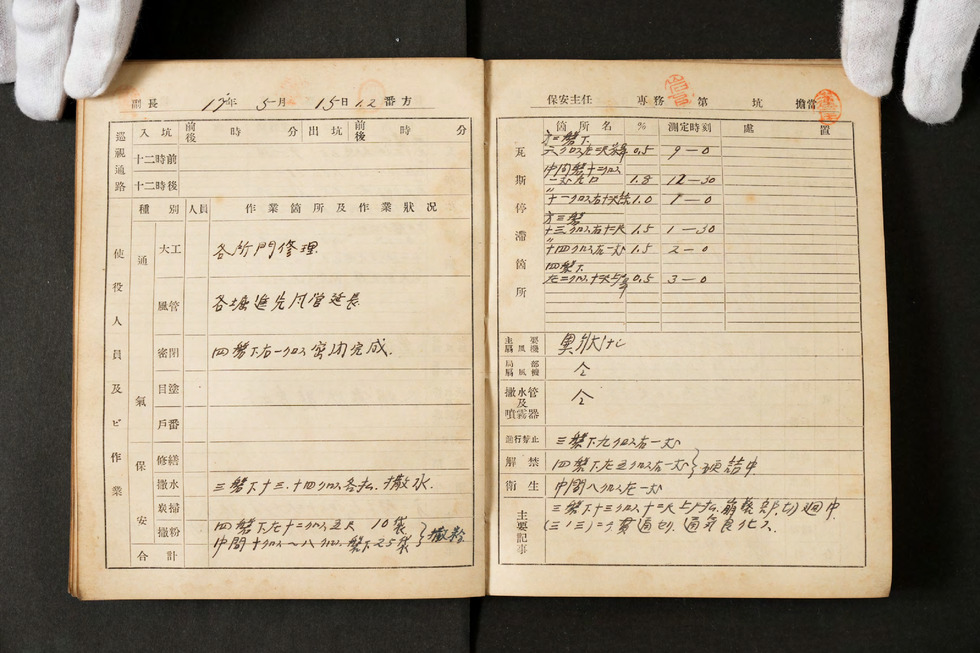 副長 17年 5月 15日 1.2番方
巡視通路 入坑 前後 時 分 出坑 前後 時 分
十二時前
十二時後
使役人員及ビ作業
種別 人員 作業箇所及作業狀況
通氣
大工 各所門修理
風管 各堀進先風管延長
密閉 四盤下右一クロス密閉完成.
目塗
戶番
保安
修繕
撒水 三盤下十三.十四クロス各払.撒水.
炭掃
撒粉 四盤下左十二クロス五尺 10袋
中間十クロス〜八クロス.盤下25袋 撒粉
合計
保安主任 專務 第 坑 擔當
瓦斯停滯箇所
箇所名 % 測定時刻 處置
0.5 9-0
中間盤十二クロス
1.8 12-30
1.0 1-0
十三クロス右十尺 1.5 1-30
〃十四クロス右一 1.5 2-0
四盤下
左二クロス 0.5 3-0
主要扇風機 異狀ナシ
局部扇風機 仝
撒水管及噴霧器 仝
進行停止 三盤下九クロス右一
解禁 四盤下左五クロス右一
衛生 中間八クロス左一
主要記事 三盤下十三クロス十二尺上 崩落 切廻中.
(三ノ三) 貫通切.通気良化ス.